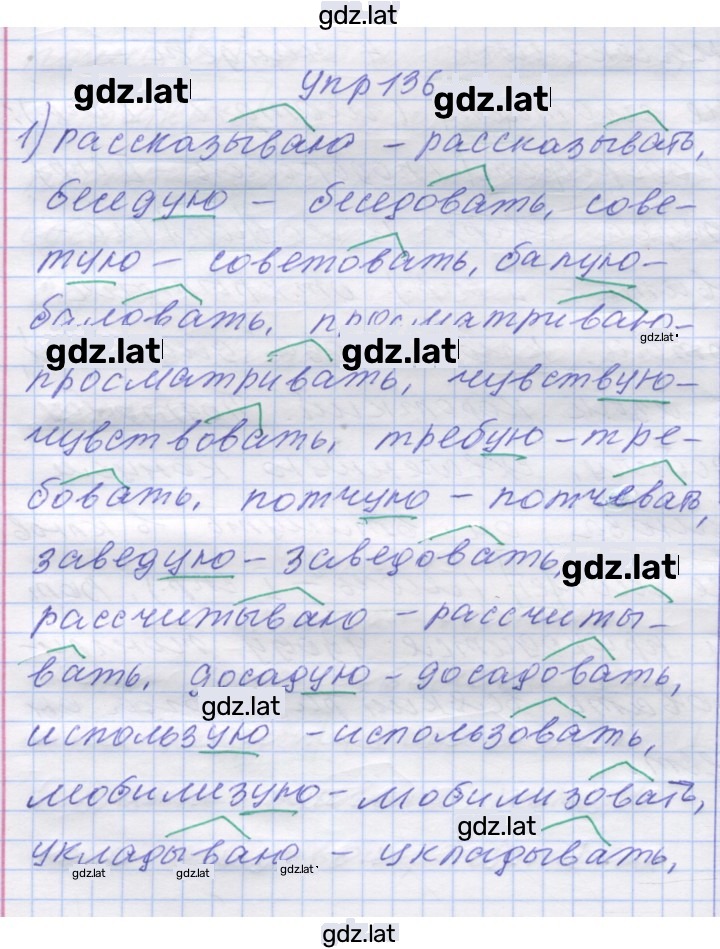 gdz.lat
упр 136
gdz.lat gdz.lat
1) рассказываю – рассказывать,
беседую – беседовать, сове-
тую – советовать, балую –
баловать, просматриваю –
gdz.lat gdz.lat gdz.lat
просматривать, чувствую –
чувствовать, требую – тре-
бовать, потчую – потчевать,
заведую – заведовать,
gdz.lat
рассчитываю – рассчиты-
вать, досадую – досадовать,
gdz.lat
использую – использовать,
мобилизую – мобилизовать,
gdz.lat
укладываю – укладывать,
gdz.lat gdz.lat gdz.lat
gdz.lat